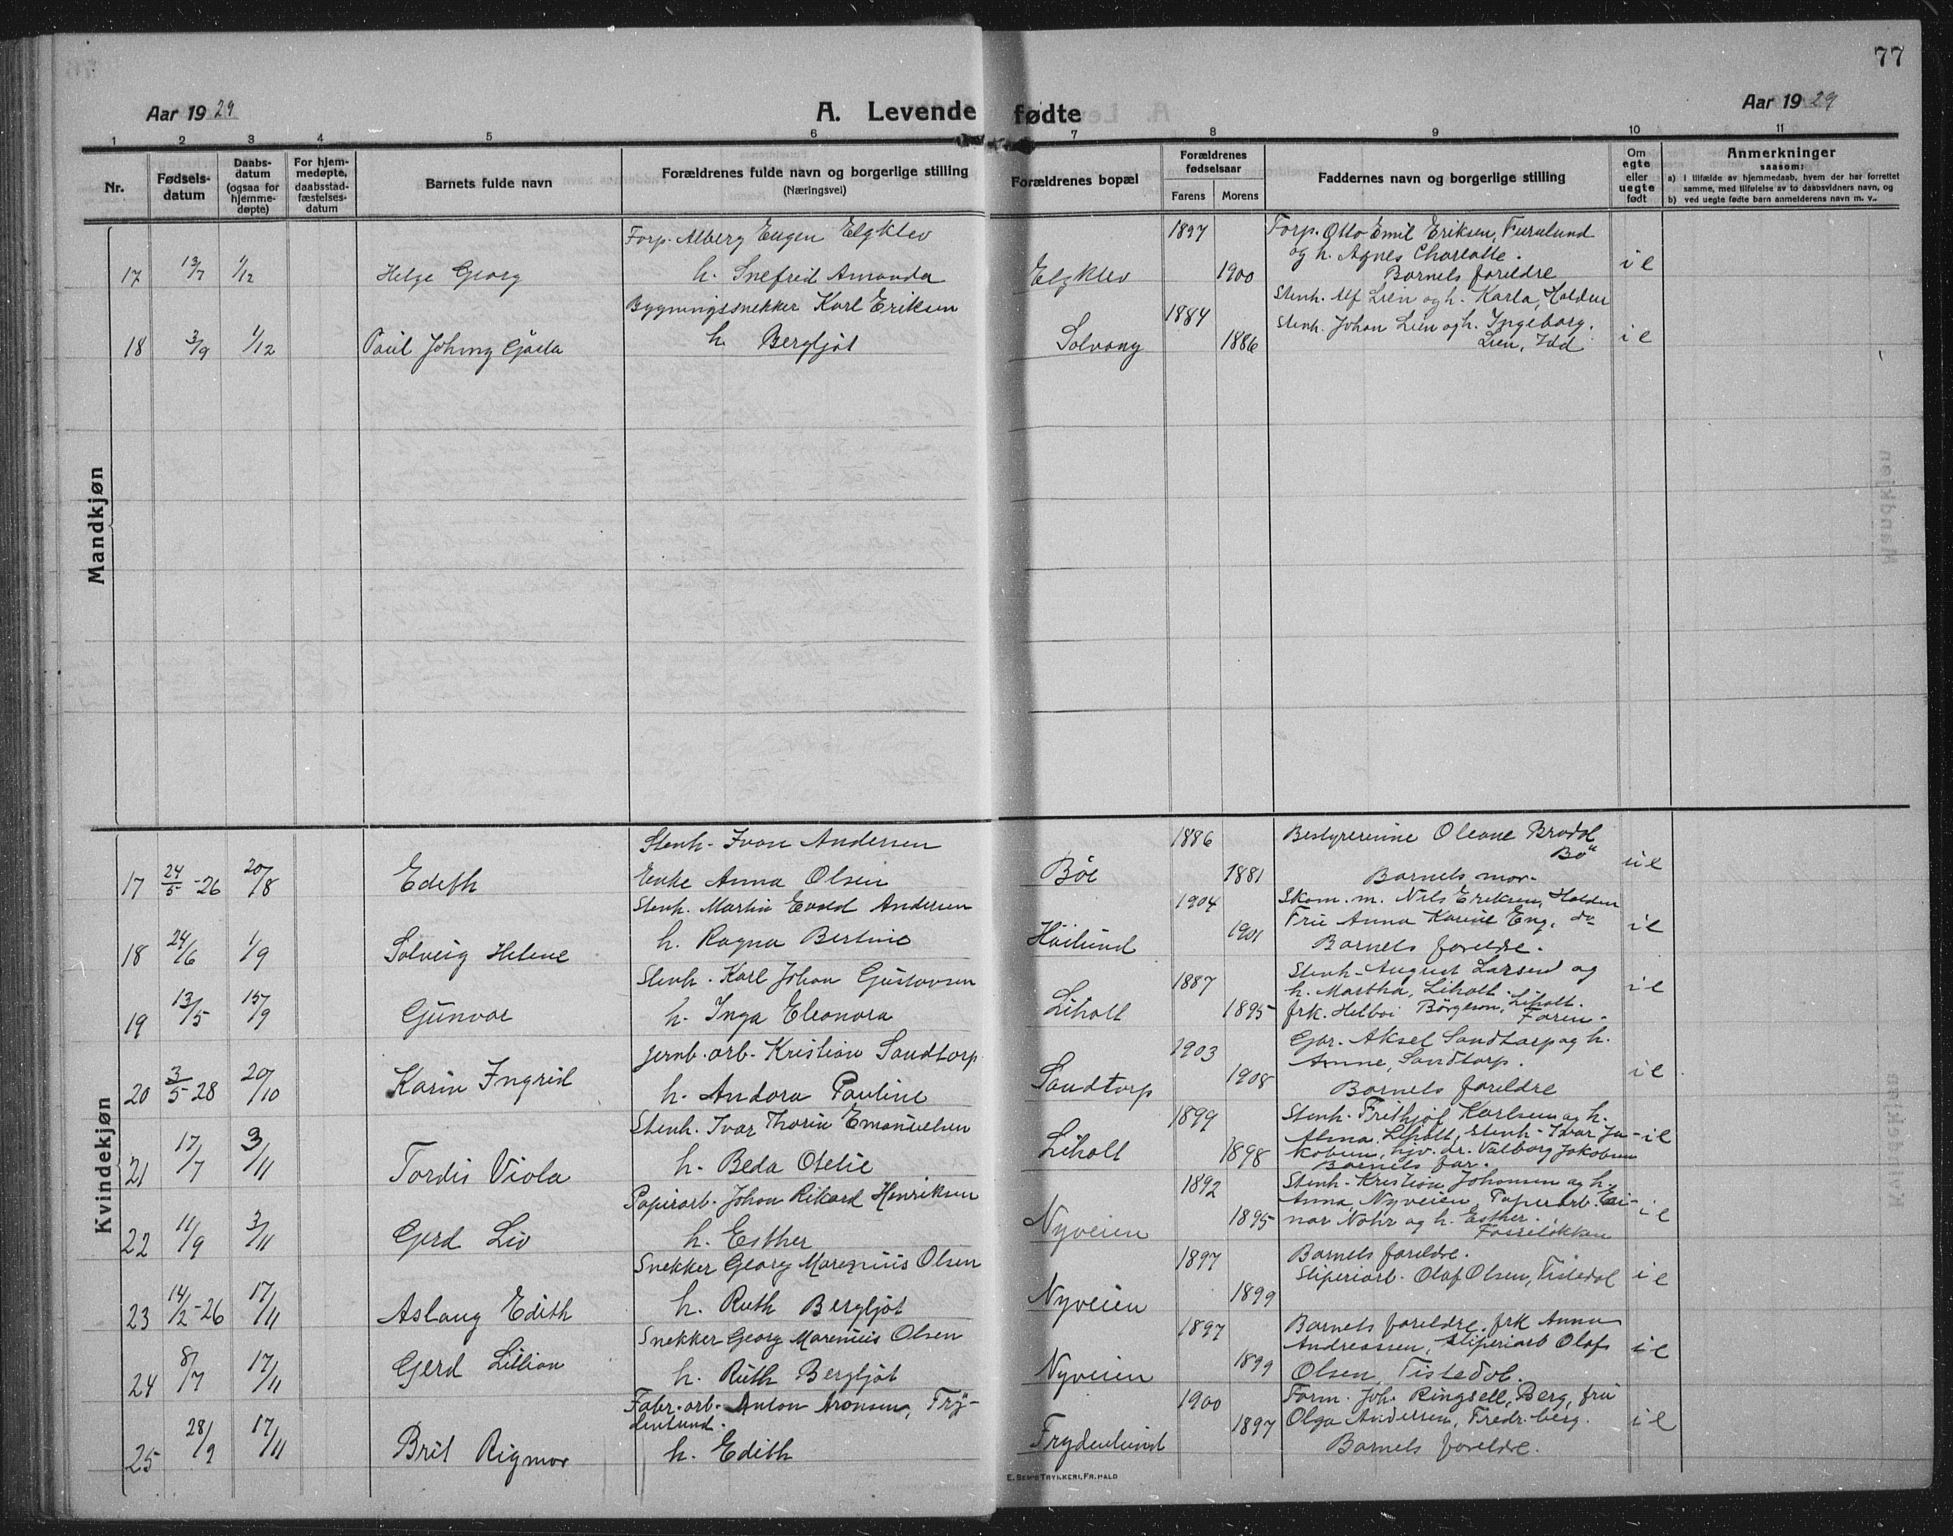 77
Aar 1929
A. Levende fødte
Aar 1929
1 2 3 4 5 6 7 8 9 10 11
Nr.
Fødsels-
datum
Daabs-
datum
(ogsaa for
hjemme-
døpte)
For hjem-
medøpte,
daabsstad-
fæstelses-
datum
Barnets fulde navn
Forældrenes fulde navn og borgerlige stilling
(Næringsvei)
Forældrenes bopæl
Forældrenes
fødselsaar
Farens Morens
Faddernes navn og borgerlige stilling
Om
egte
eller
uegte
født
Anmerkninger
saasom:
a) I tilfælde av hjemmedaab, hvem der har forrettet
samme, med tilføielse av to daabsvidners navn, og
b) ved uegte fødte barn anmelderens navn m. v..
Mandkjøn
Forp. Alberg Eugen Elgklev 1897 Forp. Otto Emil Eriksen, Furulund
og h. Agnes Charlotte.
17 13/7 1/12 Helge Georg h. Snefrid Amanda Elgklev 1900 Barnets foreldre i e
Bygningssnekker Karl Eriksen 1884 Stenh. Alf Lien og h. Karla, Holden
Stenh. Johan Lien og h. Ingeborg.
18 3/9 1/12 Paul Johny Gøsta h. Bergljot Solvang 1886 Lien, Idd i e
Kvindekjøn
Stenh. Ivar Andersen 1886 Bestyrerinne Oleane Brødol
Bö
17 24/5 -26 20/8 Edith Enke Anna Olsen Böe 1881 Barnets mor. u e
Stenh. Martin Evald Andersen 1904 Skom. m. Nils Eriksen, Holden
Fru Anna Karine Eng, do
18 24/6 1/9 Solveig Helene h. Ragna Bertine Höilund 1901 Barnets foreldre. i e
Stenh. Karl Johan Gustavsen 1887 Stenh. August Larsen og
h. Martha, Liholt.
19 13/5 15/9 Gunvor h. Inga Eleonora Liholt 1895 frk. Helboi Börgeson, Liholt. i e
Faren.
Jernb. arb. Kristian Sandtorp 1903 Gar. Aksel Sandtorp og h.
Anne, Sandtorp.
20 3/5 -28 20/10 Karin Ingrid h. Andora Pauline Sandtorp 1908 Barnets foreldre i e
Stenh. Ivar Thorin Emanuelsen 1899 Stenh. Frithjof Karlsen og h.
Alma, Liholt, Stenh. Ivar Ja-
21 17/7 3/11 Tordis Viola h. Beda Otelie Liholt 1898 kobsen, hjv. dr. Valborg Jakobsen i e
Barnets far.
Papirarb. Johan Rikard Henriksen 1892 Stenh. Kristian Johansen og h.
Anna, Nyveien, Papirarb. Ei-
22 11/9 3/11 Gerd Liv h. Esther Nyveien 1895 nar Nohr og h. Esther. i e
Snekker Georg Marenius Olsen 1897 Barnets foreldre.
Sliperiarb. Olaf Olsen, Tistedal i e
23 14/2 -26 17/11 Aslaug Edith h. Ruth Bergljot Nyveien 1899
Snekker Georg Marenius Olsen 1897 Barnets foreldre, frk Anna
Andreassen, Sliperiarb Olaf
24 8/7 17/11 Gerd Lillian h. Ruth Bergljot Nyveien 1899 Olsen, Tistedal. i e
Fabr. arb. Anton Aronsen, Fry-
denlund. 1900 Form. Joh. Ringsell, Berg, fru
Olga Andersen, Fredr.berg.
25 28/9 17/11 Brit Rigmor h. Edith Frydenlund 1897 Barnets foreldre. i e
E. Sem's Trykkeri, Fr.hald